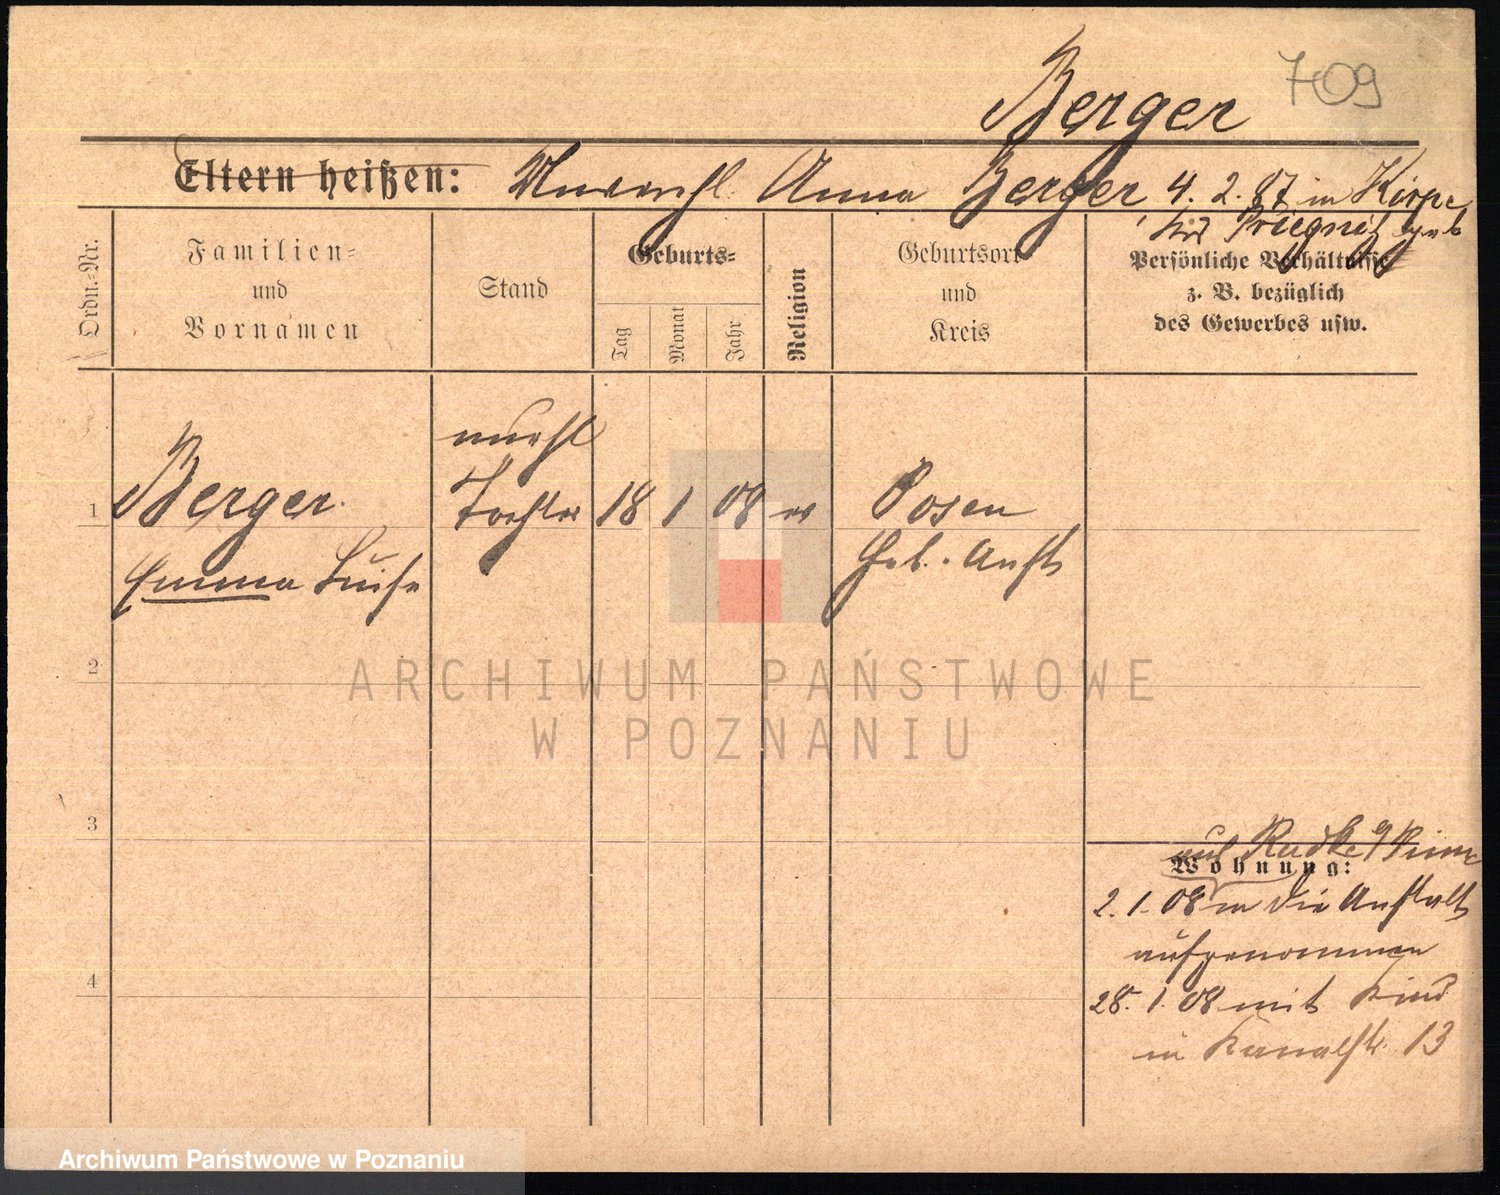 709
Berger
Eltern heißen: Unverehl. Anna Berger 4. 2. 87 in
Krs Priegnitz geb
Ordn.-Nr.
Familien-
und
Vornamen
Stand
Geburts-
Tag
Monat
Jahr
Religion
Geburtsort
und
Kreis
Persönliche Verhältnisse
z. B. bezüglich
des Gewerbes usw.
unehl
1 Berger Tochter 18 1 08 ev Posen
Emma Luise Geb. Anst
2
3
4
aus
Wohnung:
2. 1. 08 in die Anstalt
aufgenommen
28. 1. 08 mit Kind
in Kanalstr. 13
ARCHIWUM PAŃSTWOWE
W POZNANIU
Archiwum Państwowe w Poznaniu